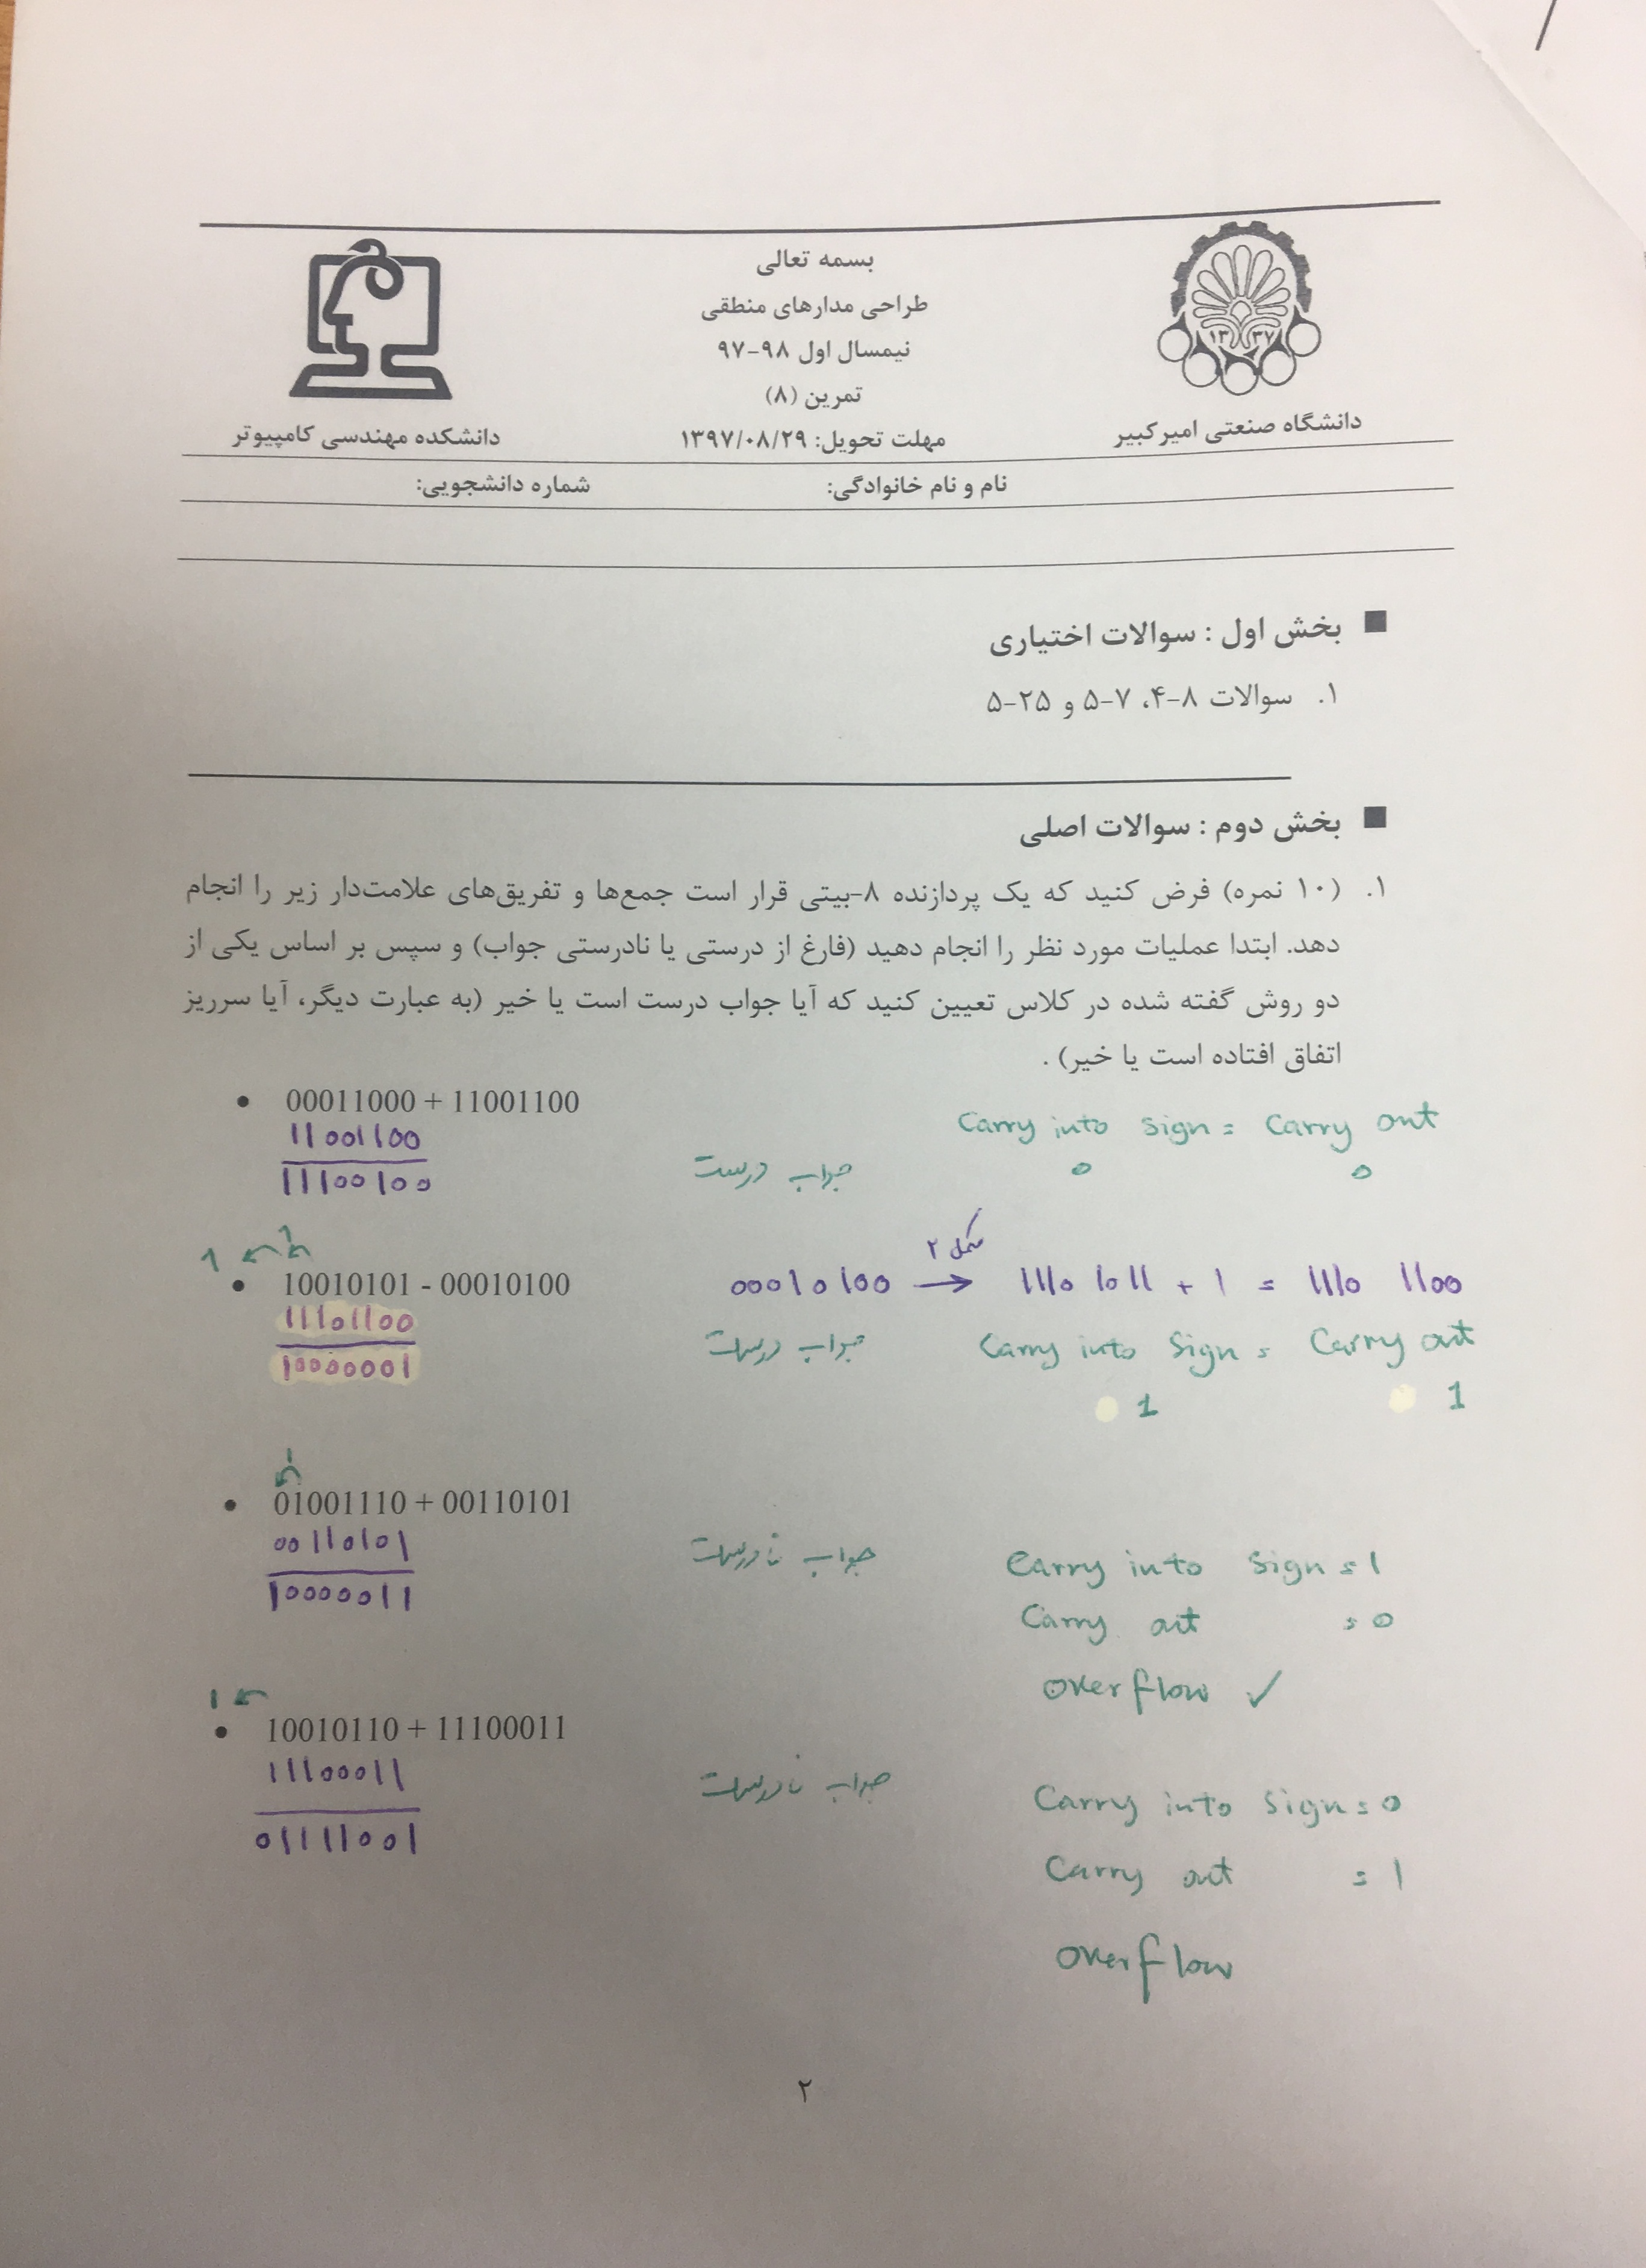 بسمه تعالی
طراحی مدارهای منطقی
نیمسال اول ۹۸-۹۷
تمرین (۸)
مهلت تحویل: ۱۳۹۷/۰۸/۲۹
۱۳۳۷
دانشگاه صنعتی امیرکبیر
دانشکده مهندسی کامپیوتر
نام و نام خانوادگی:
شماره دانشجویی:
بخش اول : سوالات اختیاری
۱. سوالات ۸-۴، ۷-۵ و ۲۵-۵
بخش دوم : سوالات اصلی
۱. (۱۰ نمره) فرض کنید که یک پردازنده ۸-بیتی قرار است جمع‌ها و تفریق‌های علامت‌دار زیر را انجام
دهد. ابتدا عملیات مورد نظر را انجام دهید (فارغ از درستی یا نادرستی جواب) و سپس بر اساس یکی از
دو روش گفته شده در کلاس تعیین کنید که آیا جواب درست است یا خیر (به عبارت دیگر، آیا سرریز
اتفاق افتاده است یا خیر) .
• 00011000 + 11001100
11001100
11100100
جواب درست
Carry into sign = Carry out
0 0
1 1
• 10010101 - 00010100
11101100
10000001
00010100 → مکمل ۲ 1110 1011 + 1 = 1110 1100
جواب درست
Carry into Sign = Carry out
1 1
1
• 01001110 + 00110101
00110101
10000011
جواب نادرست
Carry into Sign = 1
Carry out = 0
overflow ✓
1
• 10010110 + 11100011
11100011
01111001
جواب نادرست
Carry into Sign = 0
Carry out = 1
overflow
۲